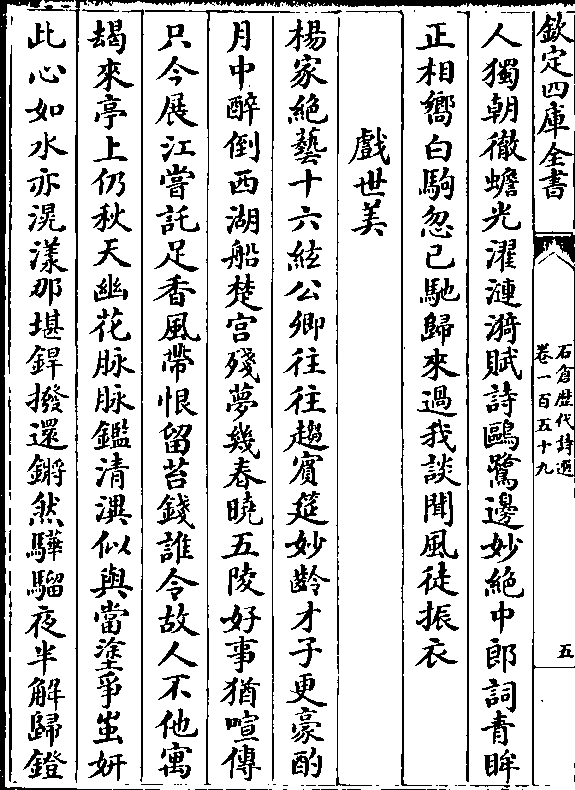 欽定四庫全書
石倉歴代詩選
卷一百五十九
五
人獨朝徹蟾光濯漣漪賦詩鷗鷺邊妙絶中郎詞青眸
正相嚮白駒忽已馳歸來過我談聞風徒振衣
戲世美
楊家絶藝十六絃公卿往往趨賓筵妙齡才子更豪酌
月中醉倒西湖船楚宫殘夢幾春曉五陵好事猶喧傳
只今展江嘗託足香風帶恨留苔錢誰令故人不他寓
朅來亭上仍秋天幽花脉脉鑑清淟似與當塗爭蚩妍
此心如水亦滉漾那堪銲撥還鏘然驊騮夜半解歸鐙